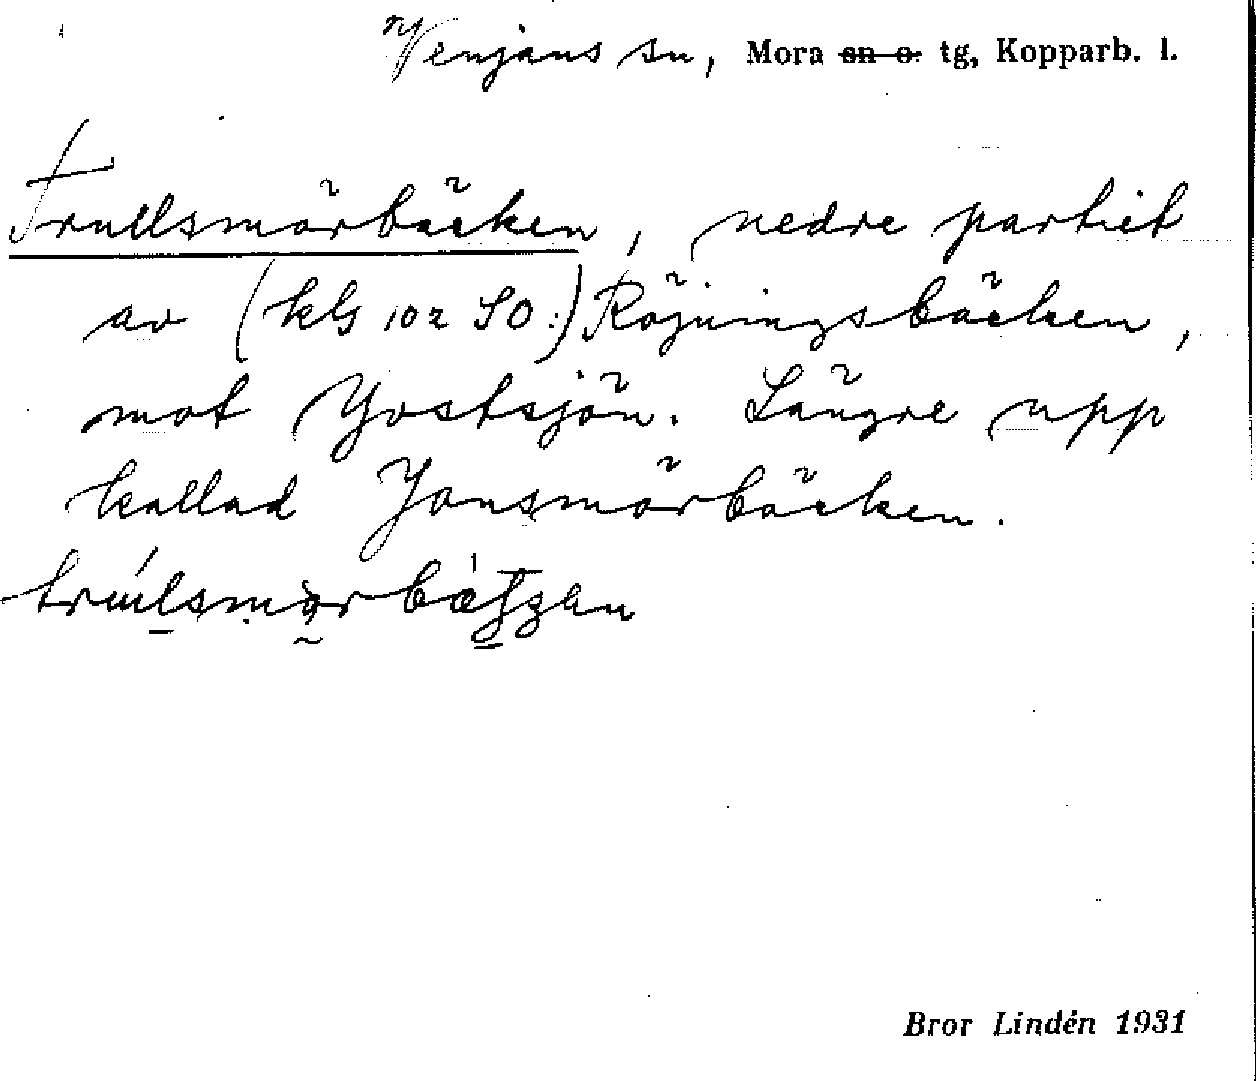 Venjans sn, Mora sn o. tg, Kopparb. l.
Trullsmörbäcken, nedre partiet
av (kbl 102 SO:) Röjningsbäcken,
mot Yvstsjön. Längre upp
kallad Jonsmörbäcken.
Bror Lindén 1931